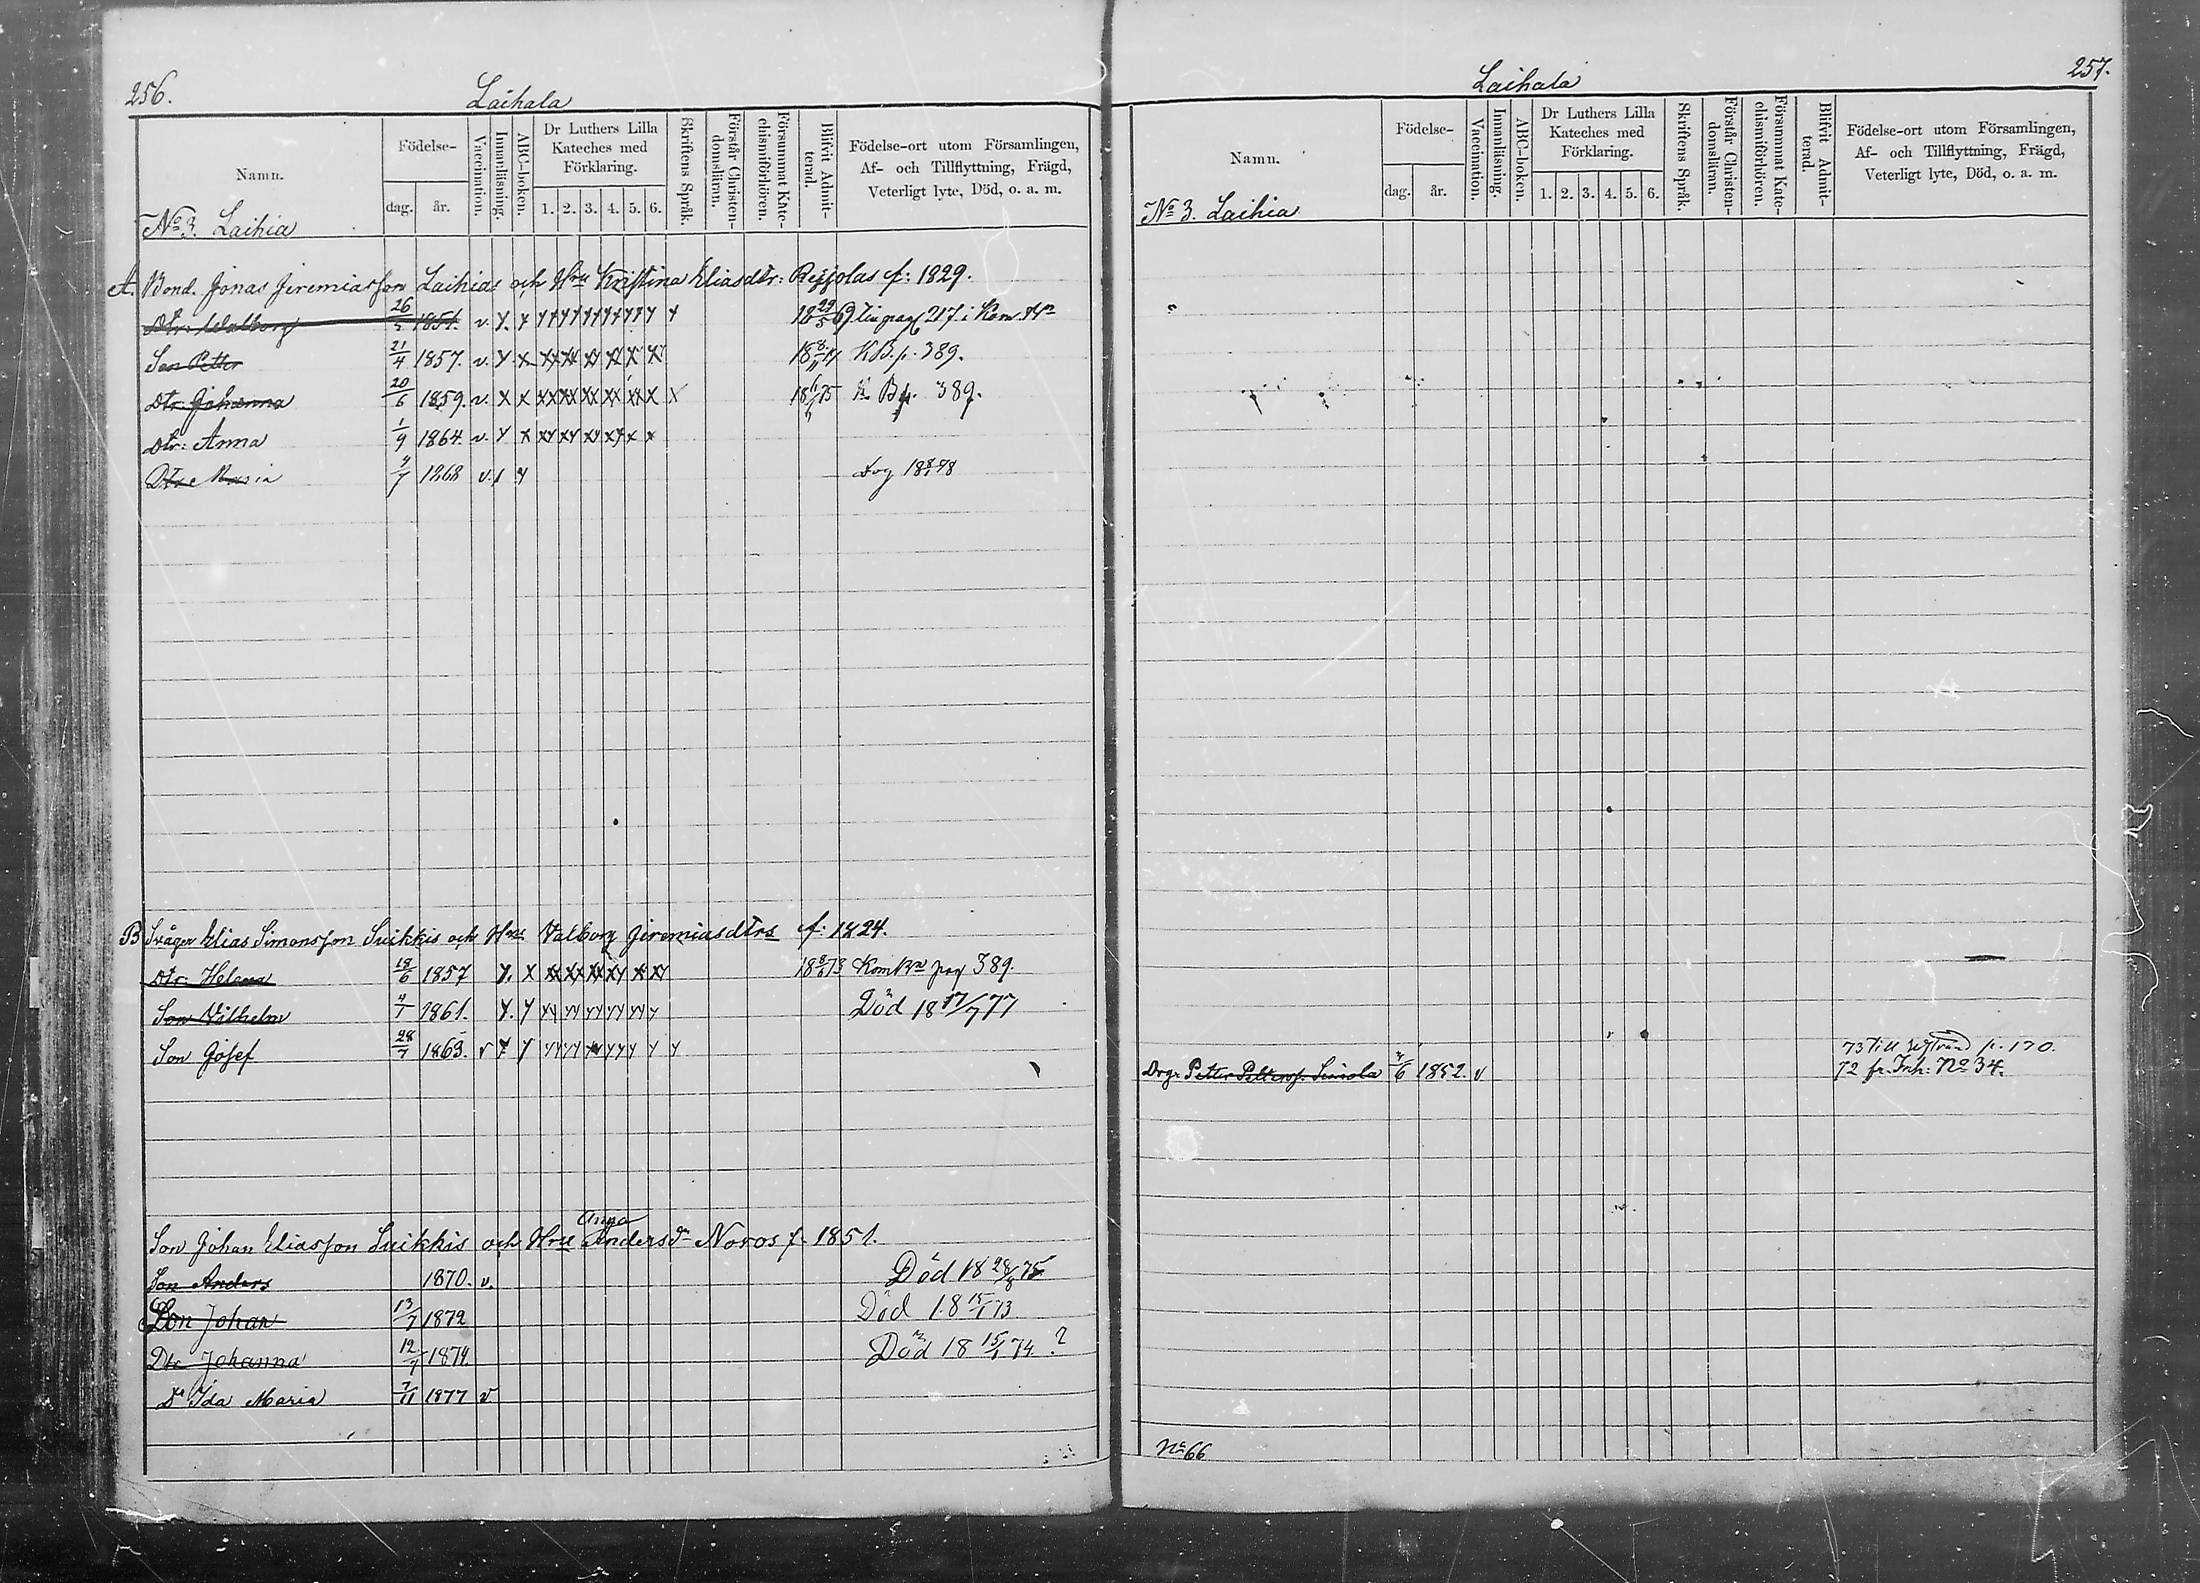 256.
Laihala
Namn.
Födelse-
dag. år.
Vaccination.
Innanläsning.
ABC-boken.
Dr Luthers Lilla Kateches med Förklaring.
1. 2. 3. 4. 5. 6.
Skriftens Språk.
Förstår Christendomsläran.
Försummat Katechismiförhören.
Blifvit Admitterad.
Födelse-ort utom Församlingen,
Af- och Tillflyttning, Frägd,
Veterligt lyte, Död, o. a. m.
No 3. Laihia
A. Bond. Jonas Jeremiasson Laihias och Hru Kristina Eliasdtr: f: 1829.
Dtr: Walborg 1851. v.
Son Petter 21/4 1857. v. K B. p. 389.
Dtr: Johanna 20/6 1859. v. K B p. 389.
Dtr: Anna 1/9 1864. v.
Dtr Maria 1868 v.
B Svåger Elias Simonsson Luikkis och Hru Valborg Jeremiasdtrs f: 1824.
Dtr: Helena 18/6 1857 389.
Son Vilhelm 1861. Död 18 17/7 77
Son Josef 28/7 1863. v
Son Johan Eliasson Luikkis och Hru Anna Andersdr Noros f. 1851.
Son Anders 1870. v. Död 18 28/8 75
Son Johan 13/7 1872 Död 18 15/1 73
Dtr Johanna 12/7 1874. Död 18 15/1 74 ?
Dr Ida Maria 7/11 1877 v.
257.
Laihala
Namn.
Födelse-
dag. år.
Vaccination.
Innanläsning.
ABC-boken.
Dr Luthers Lilla Kateches med Förklaring.
1. 2. 3. 4. 5. 6.
Skriftens Språk.
Förstår Christendomsläran.
Försummat Katechismiförhören.
Blifvit Admitterad.
Födelse-ort utom Församlingen,
Af- och Tillflyttning, Frägd,
Veterligt lyte, Död, o. a. m.
No 3. Laihia
73 till p. 170.
Drgr Petter Petterss. 1852. v 72 fr. Inh: No 34.
No 66